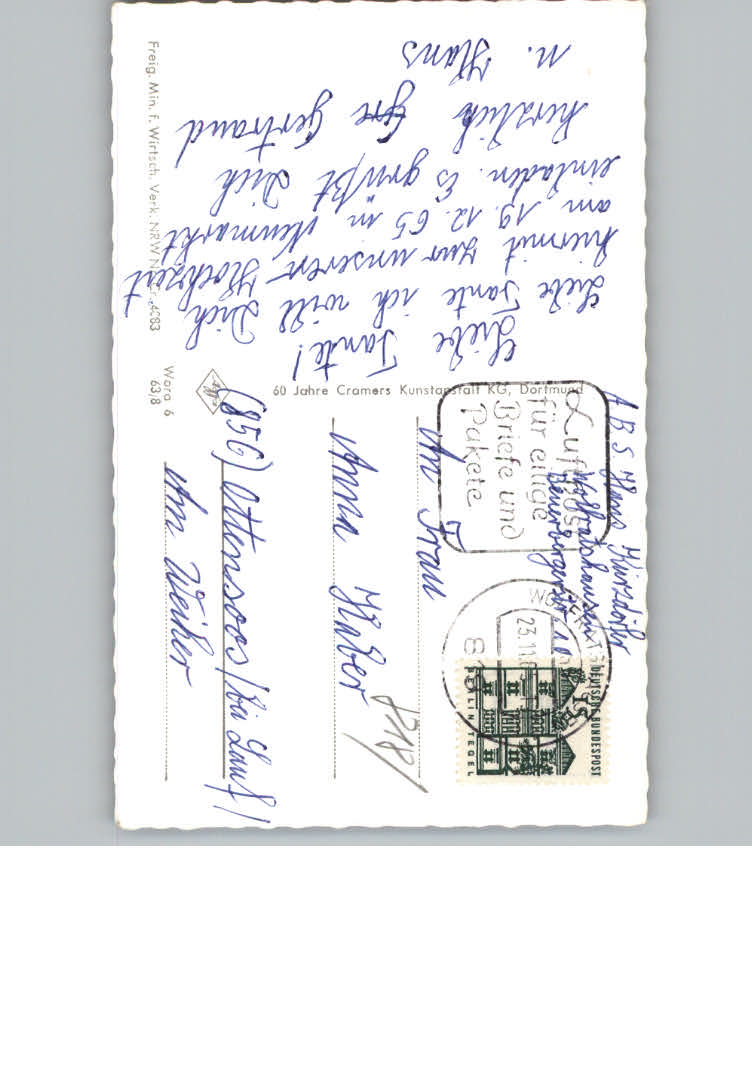 Liebe Tante!
Liebe Tante ich will Dich
hiermit zur unserer Hochzeit
am 19. 12. 65 in Neumarkt
einladen. Es grüßt Dich
herzlich Gertraud
u. Hans
Freig. Min. f. Wirtsch. Verk. NRW
4083
Wara 6
63/8
60 Jahre Cramers Kunstanstalt KG, Dortmund
ABS Hans
Wolfratshausen
Luftpost
für eilige
Briefe und
Pakete
23.11.6
DEUTSCHE BUNDESPOST
BERLIN TEGEL
An Frau
Anna Huber
8218/
(856) Ottensoos /bei Lauf/
Am Weiher